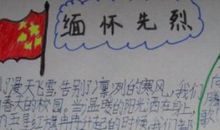 缅怀先烈
了漫天飞雪,告别了凛冽的寒风,我们
香大的校园。当温暖的阳光洒在身上,
五星红旗冉冉升起的时候,我们